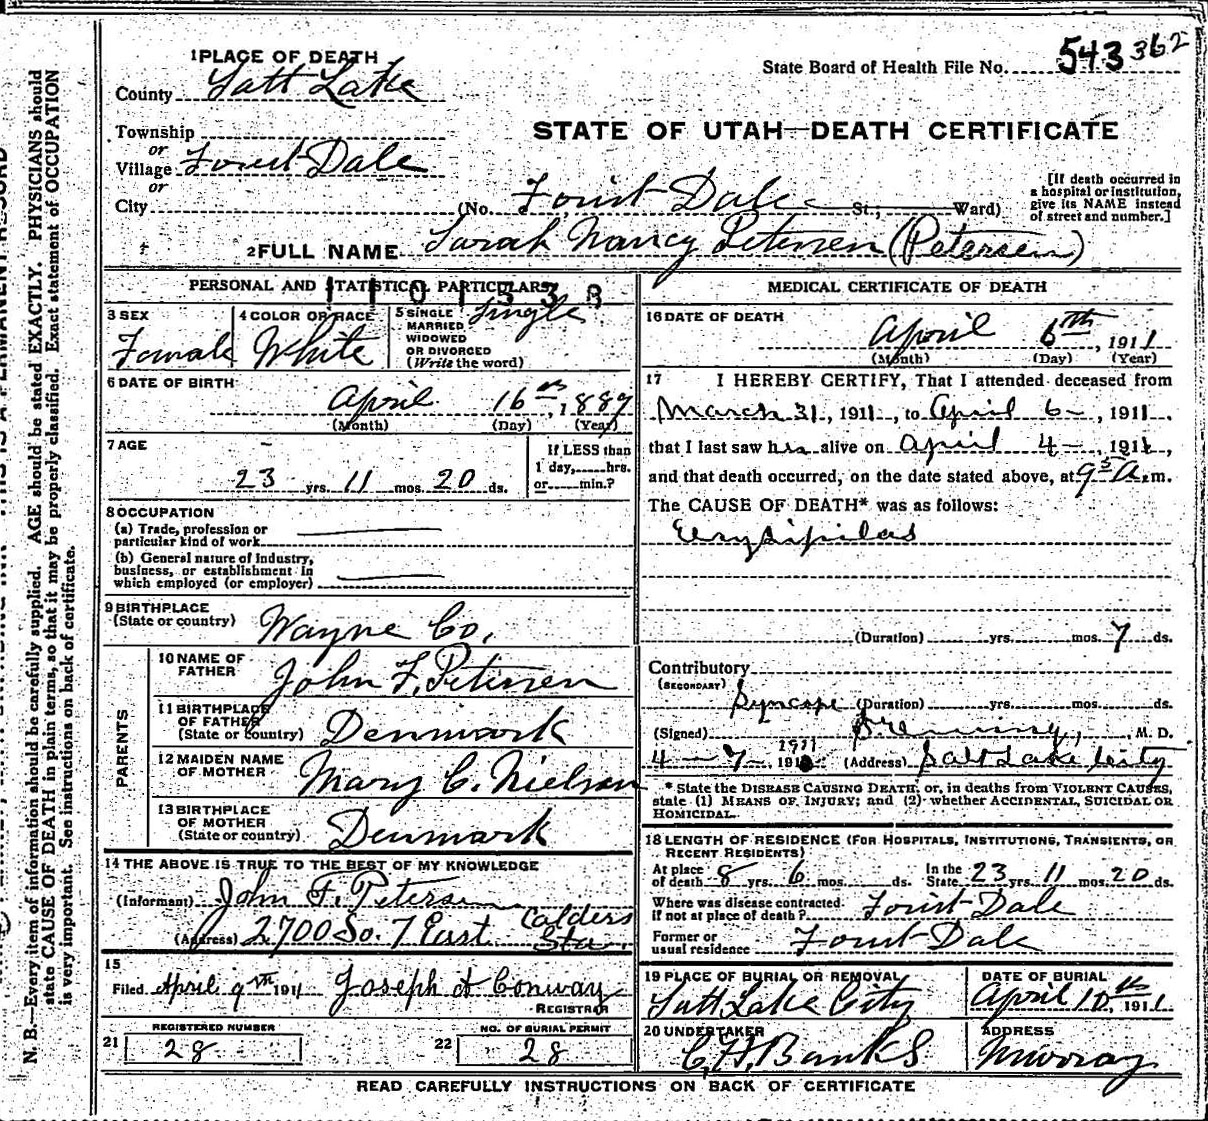 543 362
1 PLACE OF DEATH
State Board of Health File No.
County Salt Lake
STATE OF UTAH—DEATH CERTIFICATE
Township
or
Village Forest Dale
or
City (No. Forest Dale St.; Ward)
[If death occurred in
a hospital or institution,
give its NAME instead
of street and number.]
2 FULL NAME Sarah Nancy Petersen (Petersen)
PERSONAL AND STATISTICAL PARTICULARS
3 SEX
Female
4 COLOR OR RACE
White
5 SINGLE
MARRIED
WIDOWED
OR DIVORCED
(Write the word)
Single
6 DATE OF BIRTH
April 16th, 1887
(Month) (Day) (Year)
7 AGE
23 yrs. 11 mos. 20 ds.
If LESS than
1 day, hrs.
or min.?
8 OCCUPATION
(a) Trade, profession or
particular kind of work
(b) General nature of industry,
business, or establishment in
which employed (or employer)
9 BIRTHPLACE
(State or country) Wayne Co.
PARENTS
10 NAME OF
FATHER John F. Petersen
11 BIRTHPLACE
OF FATHER
(State or country) Denmark
12 MAIDEN NAME
OF MOTHER Mary C. Nielson
13 BIRTHPLACE
OF MOTHER
(State or country) Denmark
14 THE ABOVE IS TRUE TO THE BEST OF MY KNOWLEDGE
(Informant) John F. Petersen
(Address) 2700 So. 7 East Calders Sta.
15
Filed April 9th 1911 Joseph A Conway
REGISTRAR
21 REGISTERED NUMBER
28
22 NO. OF BURIAL PERMIT
28
MEDICAL CERTIFICATE OF DEATH
16 DATE OF DEATH
April 6th, 1911
(Month) (Day) (Year)
17 I HEREBY CERTIFY, That I attended deceased from
March 31, 1911, to April 6—, 1911,
that I last saw her alive on April 4—, 1911,
and that death occurred, on the date stated above, at 9 A.m.
The CAUSE OF DEATH* was as follows:
Erysipilas
(Duration) yrs. mos. 7 ds.
Contributory
(SECONDARY)
Syncope (Duration) yrs. mos. ds.
(Signed) M. D.
4—7— 1911 (Address) Salt Lake City
* State the DISEASE CAUSING DEATH, or, in deaths from VIOLENT CAUSES,
state (1) MEANS OF INJURY; and (2) whether ACCIDENTAL, SUICIDAL OR
HOMICIDAL.
18 LENGTH OF RESIDENCE (FOR HOSPITALS, INSTITUTIONS, TRANSIENTS, OR
RECENT RESIDENTS)
At place
of death 8 yrs. 6 mos. ds. In the
State 23 yrs. 11 mos. 20 ds.
Where was disease contracted
if not at place of death? Forest Dale
Former or
usual residence Forest Dale
19 PLACE OF BURIAL OR REMOVAL
Salt Lake City
DATE OF BURIAL
April 10th 1911
20 UNDERTAKER
C. H. Banks
ADDRESS
Murray
READ CAREFULLY INSTRUCTIONS ON BACK OF CERTIFICATE
N. B.—Every item of information should be carefully supplied. AGE should be stated EXACTLY. PHYSICIANS should
state CAUSE OF DEATH in plain terms, so that it may be properly classified. Exact statement of OCCUPATION
is very important. See instructions on back of certificate.